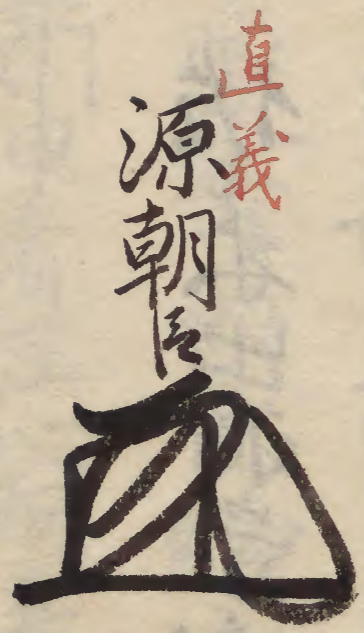 直義
源朝臣